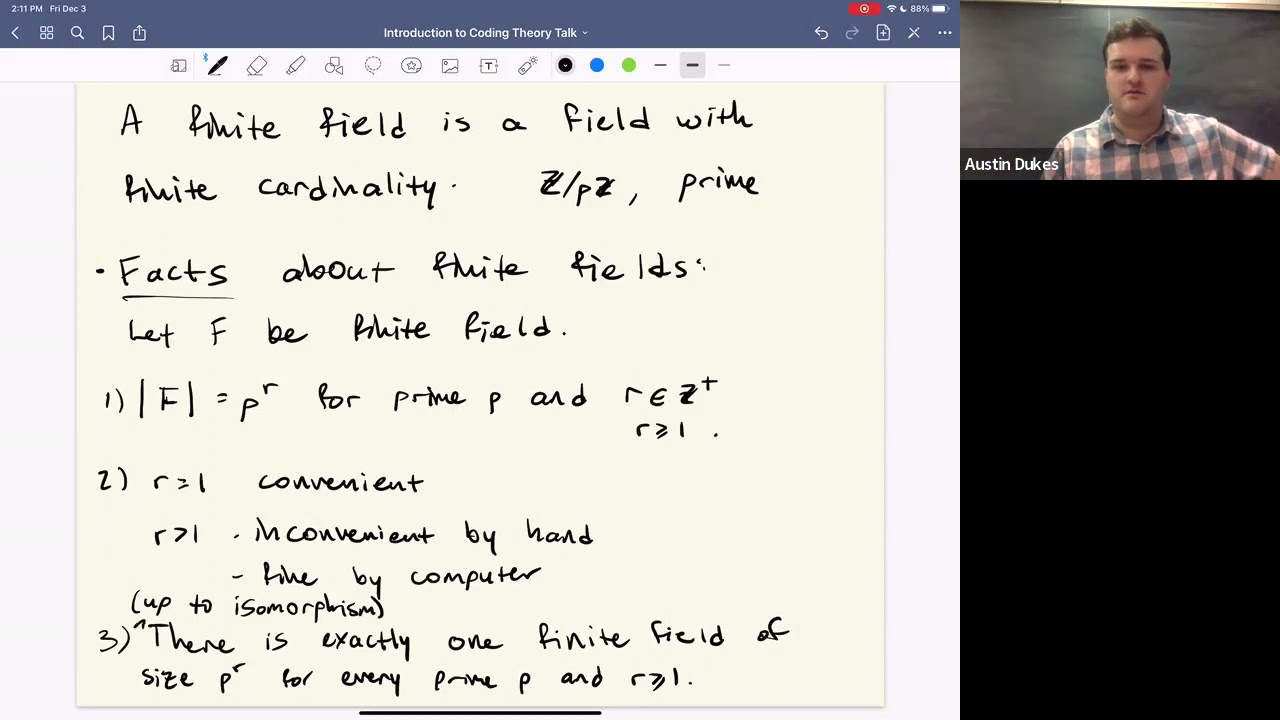 2:11 PM Fri Dec 3
88%
Introduction to Coding Theory Talk
A finite field is a field with
finite cardinality. Z/pZ, prime
· Facts about finite fields:
Let F be finite field.
1) |F| = p^r for prime p and r ∈ Z^+
r ≥ 1 .
2) r = 1 convenient
r > 1 · inconvenient by hand
- fine by computer
(up to isomorphism)
3) ^ There is exactly one finite field of
size p^r for every prime p and r ≥ 1.
Austin Dukes